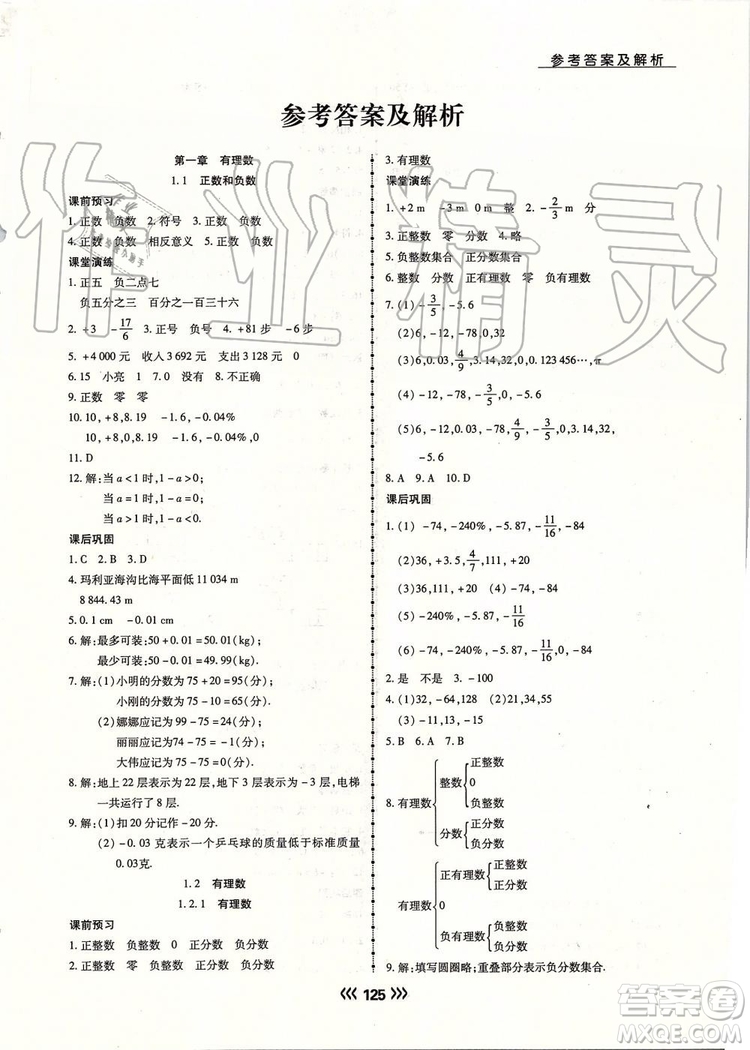 参考答案及解析
参考答案及解析
第一章 有理数
1.1 正数和负数
课前预习
1.正数 负数 2.符号 3.正数 负数
4.正数 负数 相反意义 5.正数 负数
课堂演练
1.正五 负二点七
负五分之三 百分之一百三十六
2.+3 -17/6 3.正号 负号 4.+81 步 -6 步
5.+4 000 元 收入 3 692 元 支出 3 128 元 0
6.15 小亮 1 7.0 没有 8.不正确
9.正数 零 零
10.10,+8,8.19 -1.6,-0.04%
10,+8,0,8.19 -1.6,-0.04%
11.D
12.解:当 a<1 时,1-a>0;
当 a=1 时,1-a=0;
当 a>1 时,1-a<0.
课后巩固
1.C 2.B 3.D
4.玛利亚海沟比海平面低 11 034 m
8 844.43 m
5.0.1 cm -0.15 cm
6.解:最多可装:50+0.01=50.01(kg);
最少可装:50-0.01=49.99(kg).
7.解:(1)小明的分数为 75+20=95(分);
小刚的分数为 75-10=65(分).
(2)娜娜应记为 99-75=24(分);
丽丽应记为74-75=-1(分);
大伟应记为 75-75=0(分)
8.解:地上 22 层表示为 22,地下 3 层表示为-3 层,电梯
一共运行了 8 层.
9.解:(1)扣 20 分记作-20 分.
(2)-0.03 克表示一个乒乓球的质量低于标准质量
0.03克.
1.2 有理数
1.2.1 有理数
课前预习
1.正整数 负整数 0 正分数 负分数
2.正整数 零 负整数 正分数 负分数
3.有理数
课堂演练
1.+2 m -3 m 0 m 整 2.-2/3 m 分
3.正整数 零 分数 4.略
5.负整数集合 正分数集合
6.整数 分数 正有理数 零 负有理数
7.(1)-3/5,-5.6
(2)6,-12,-78,0,32
(3)6,0.03,4/9,32,0.123 456…,π
(4)-12,-78,-3/5,0,-5.6
(5)6,-12,0.03,-78,4/9,-3/5,0,14,32,
-5.6
8.A 9.A 10.D
课后巩固
1.(1)-74,-240%,-5.87,-11/16,-84
(2)36,+3.5,4/7,111,+20
(3)36,111,+20 (4)-74,-84
(5)-240%,-5.87,-11/16
(6)-74,-240%,-5.87,-11/16,-84
2.是 不是 3.-100
4.(1)32,-64,128 (2)21,34,55
(3)-11,13,-15
5.B 6.A 7.B
8.有理数 整数 正整数
0
负整数
分数 正分数
负分数
有理数 正有理数 正整数
正分数
0
负有理数 负整数
负分数
9.解:填写圆圈略;重叠部分表示负分数集合.
125
作业精灵
答案圈
MXQE.COM